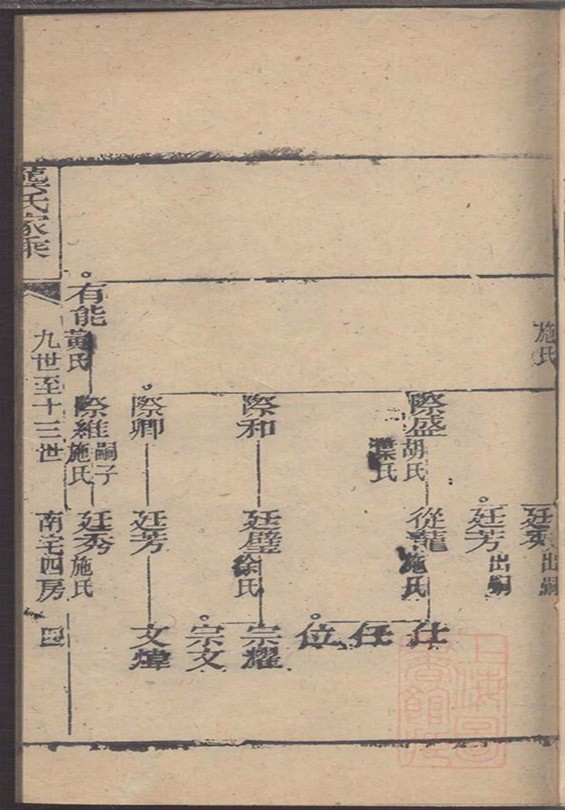 施氏
廷秀 出嗣
廷芳 出嗣
際盛 胡氏 葉氏
從龍 施氏
仕
任
位
際和
廷璧 徐氏
宗耀
宗文
際卿
廷芳
文煒
有能 黃氏
際維 嗣子 施氏
廷秀 施氏
龔氏家乘
九世至十三世
南宅四房
四
上海圖書館藏